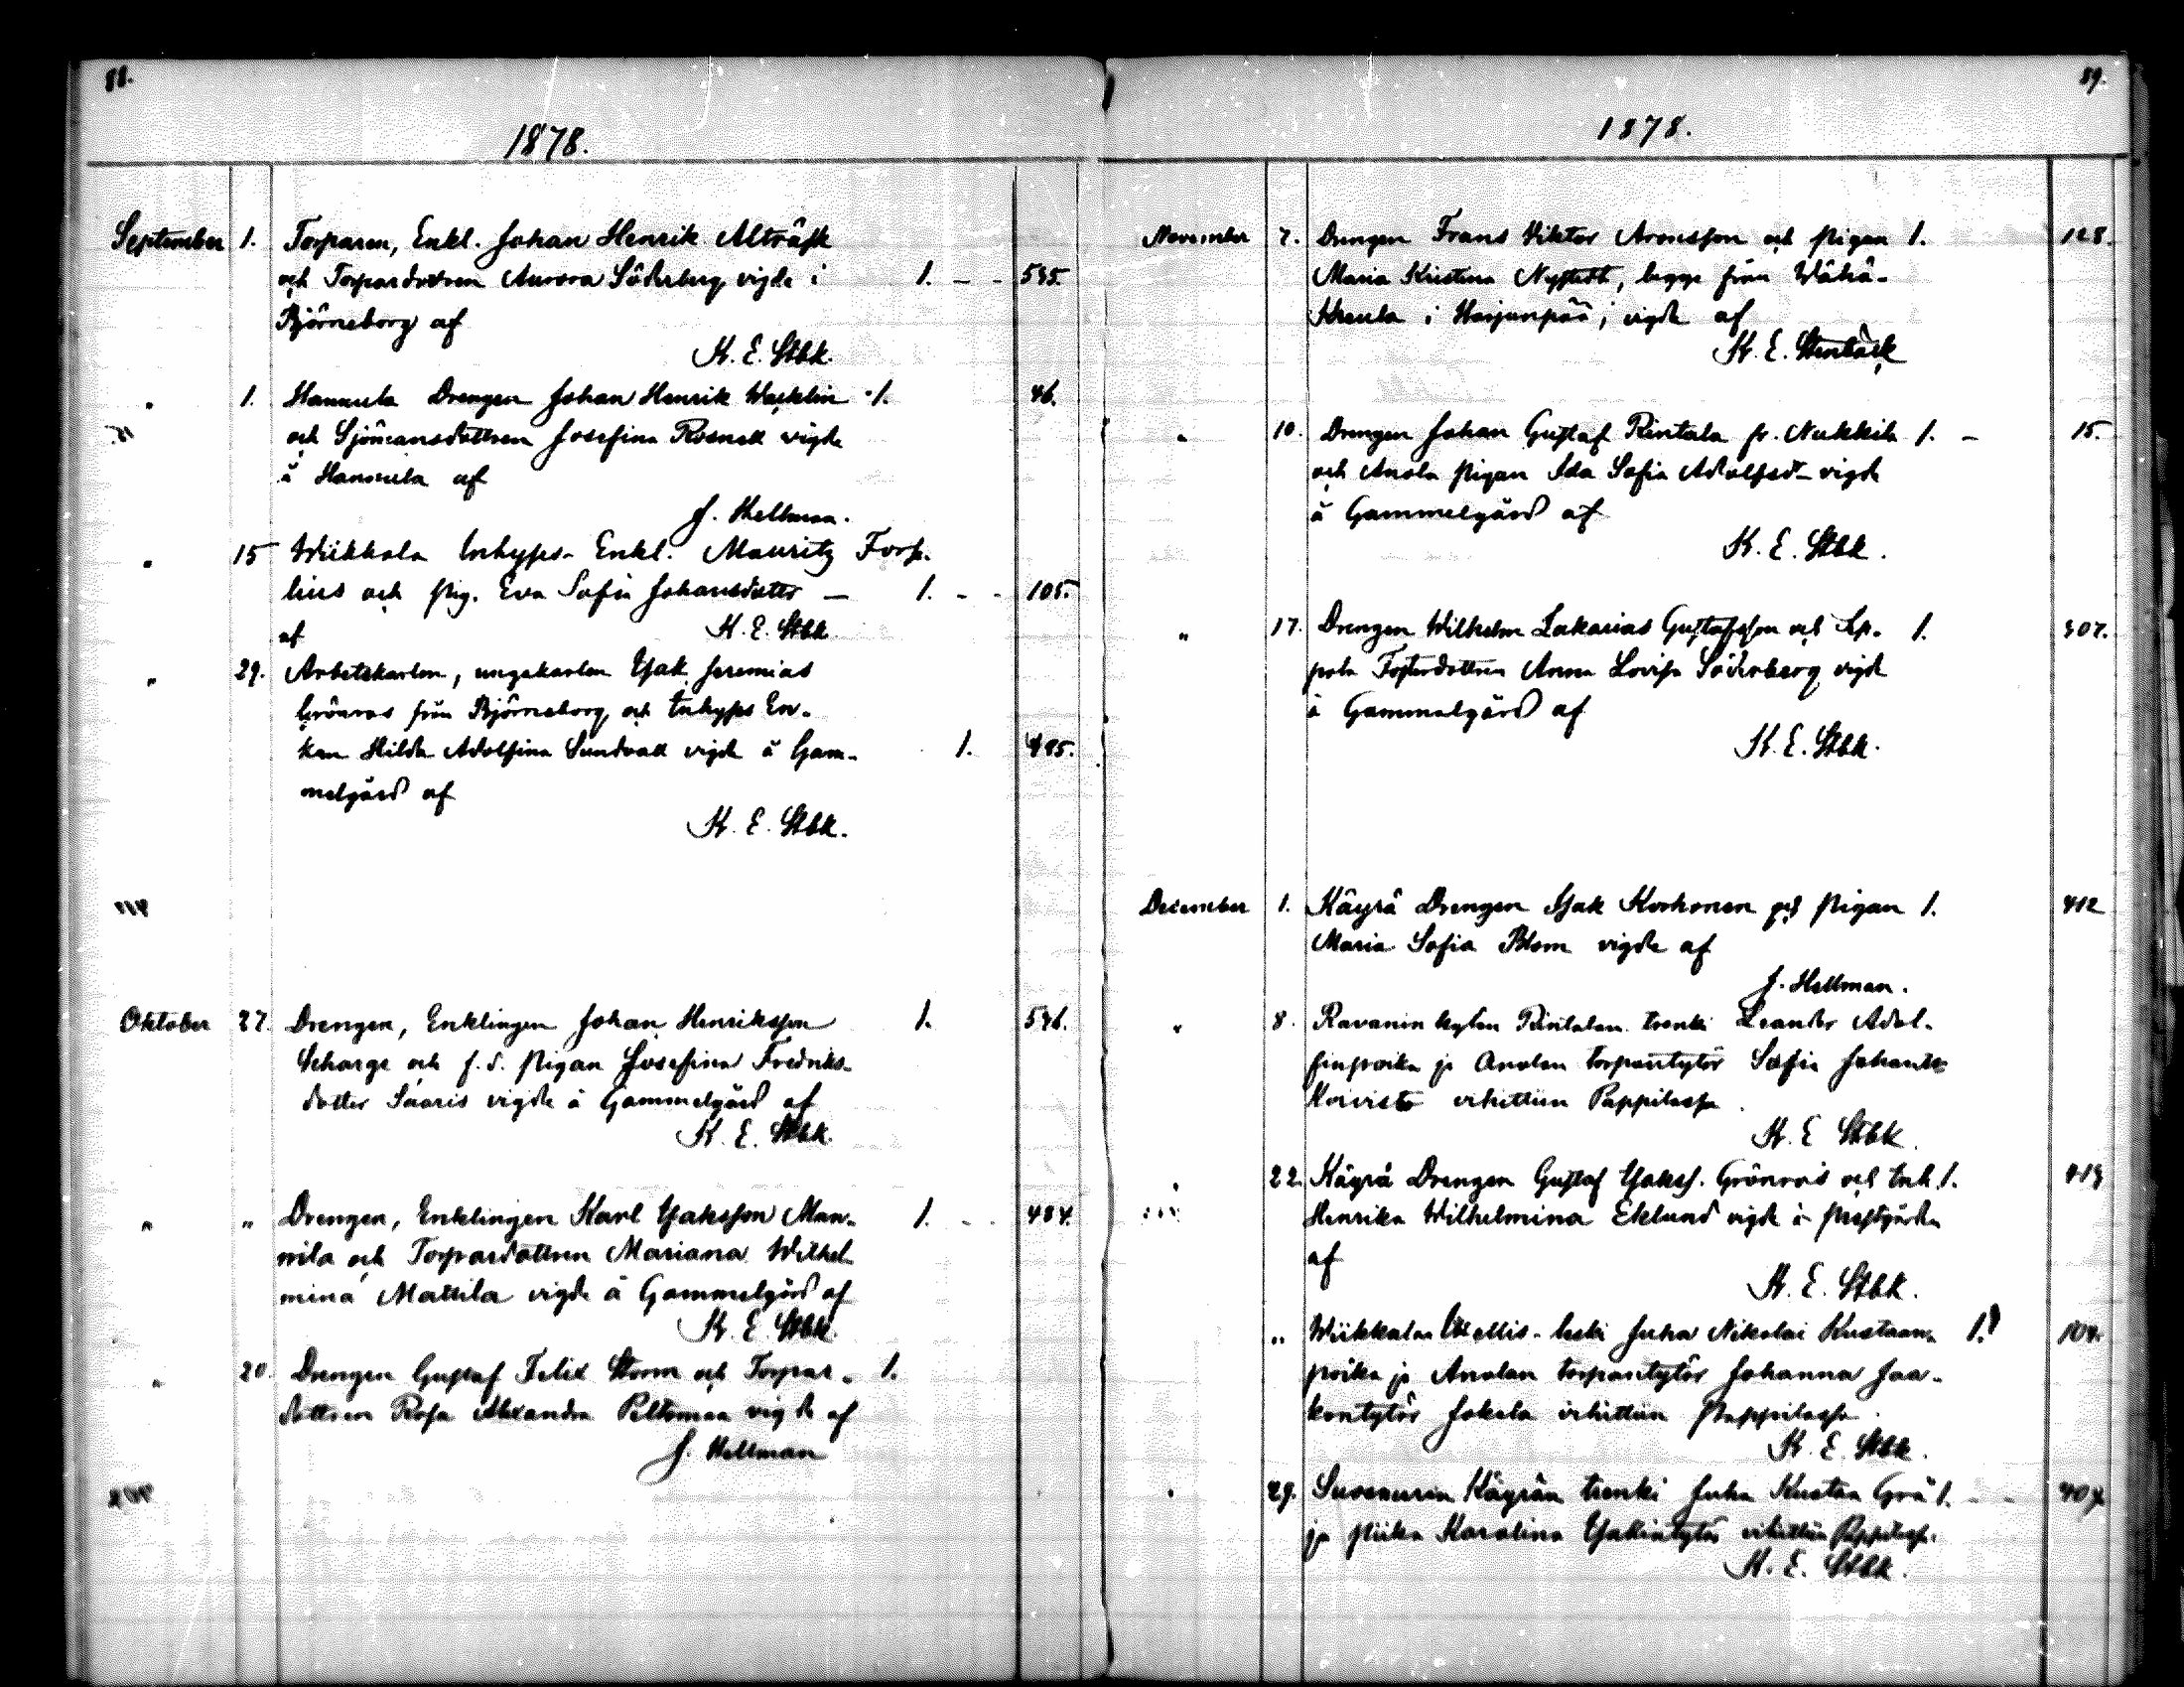 88.
1878.
September 1. Torparen, Enkl. Johan Henrik Alträsk
och Torparedottren Aurora Söderberg vigde i 1. - - 595.
Björneborg af
K. E. Stbk.
" 1. Hannula Drengen Johan Henrik Wacklin 1. 46.
och Sjömansdottren Josefina Rosnell vigde
å Hannula af
J. Hellman.
" 15 Wiikkala Inhyses Enkl. Mauritz Forse-
lius och pig. Eva Sofia Johansdotter — 1. - - 105.
af K. E. Stbk.
" 29. Arbetskarlen, ungkarlen Isak Jeremias
Grönros från Björneborg och Inhyses En-
kan Hilda Adolfina Sundvall vigde å Gam- 1. 495.
melgård af
K. E. Stbk.
Oktober 27. Drengen, Enklingen Johan Henriksson 1. 546.
Scharge och f.d. pigan Josefina Fredriks-
dotter Saaris vigde å Gammelgård af
K. E. Stbk.
" " Drengen, Enklingen Karl Isaksson Man- 1. - - 484.
nila och Torparedottren Mariana Wilhel
mina Mattila vigde å Gammelgård af
K. E. Stbk.
" 20. Drengen Gustaf Felix Storm och Torpar- 1.
dottren Rosa Alexandra Peltomaa vigde af
J. Hellman
89.
1878.
November 7. Drengen Frans Viktor Aronsson och pigan 1. 128.
Maria Kristina Nystedt, begge från Wähä-
Kreula i Harjunpää, vigde af
K. E. Stenbäck
" 10. Drengen Johan Gustaf Rintala fr. Nukkila 1. - 15.
och Anola pigan Ida Sofia Adolfsdr vigde
å Gammelgård af
K. E. Stbk.
" 17. Drengen Wilhelm Zakarias Gustafsson och Lp- 1. 307.
pola Fosterdottren Anna Lovisa Söderberg vigde
å Gammelgård af
K. E. Stbk.
December 1. Käyrä Drengen Isak Korhonen och pigan 1. 412
Maria Sofia Blom vigde af
J. Hellman.
" 8. Ravanin kylän Rintalan trenki Leander Adol-
finpoika ja Anolan torparitytär Sofia Johantr
Koivisto vihittiin Pappilassa.
K. E Stbk.
" 22. Käyrä Drengen Gustaf Isakss. Grönroos och Inh. 1. 419
Henrika Wilhelmina Eklund vigde i prestgården
af
K. E. Stbk.
" Wiikkalan leski Juha Nikolai Kustaan- 1. 104.
poika ja Anolan torparitytär Johanna Jaa-
kontytär Jokela vihittiin Pappilassa.
K. E. Stbk.
" 29. Suosmerin Käyrän trenki Juha Kustaa Grä 1. - - 404
ja piika Karolina Isakintytär vihittiin Pappilassa.
K. E. Stbk.